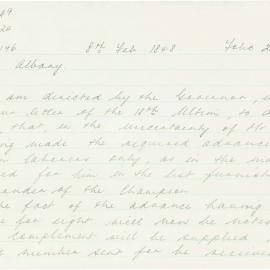 8th Feb 1848
Albany.
am directed by the Governor,
letter of the 18th Ultim, to
that, in the uncertainty of
made the required advance
laborers only, as in the
for him in the list furnish
of the Champion
fact of the advance having
for eight will now be noted
complement will be supplied
number sent for be received